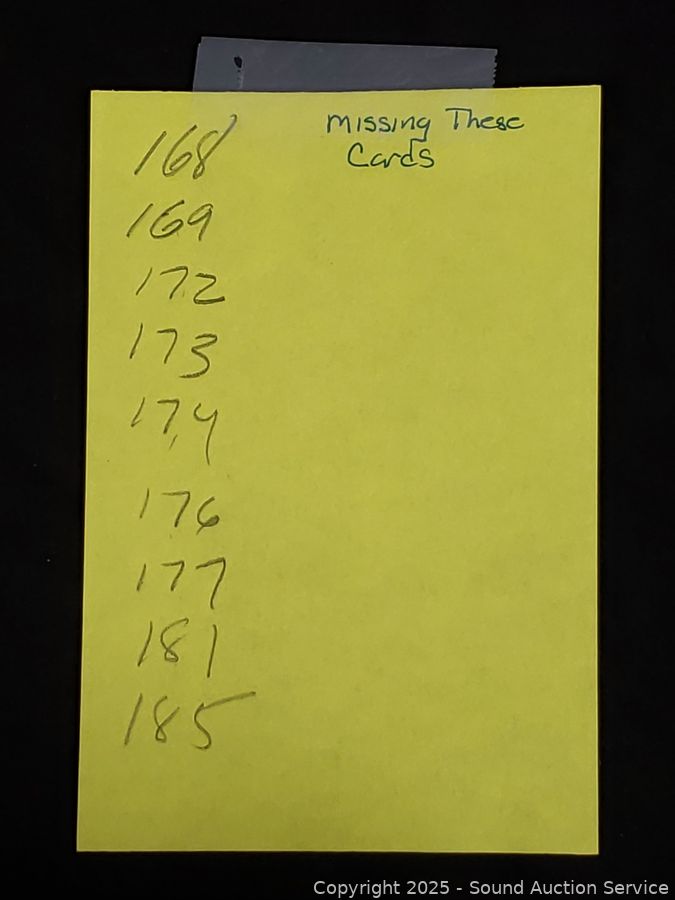 Missing These
Cards
168
169
172
173
174
176
177
181
185
Copyright 2025 - Sound Auction Service